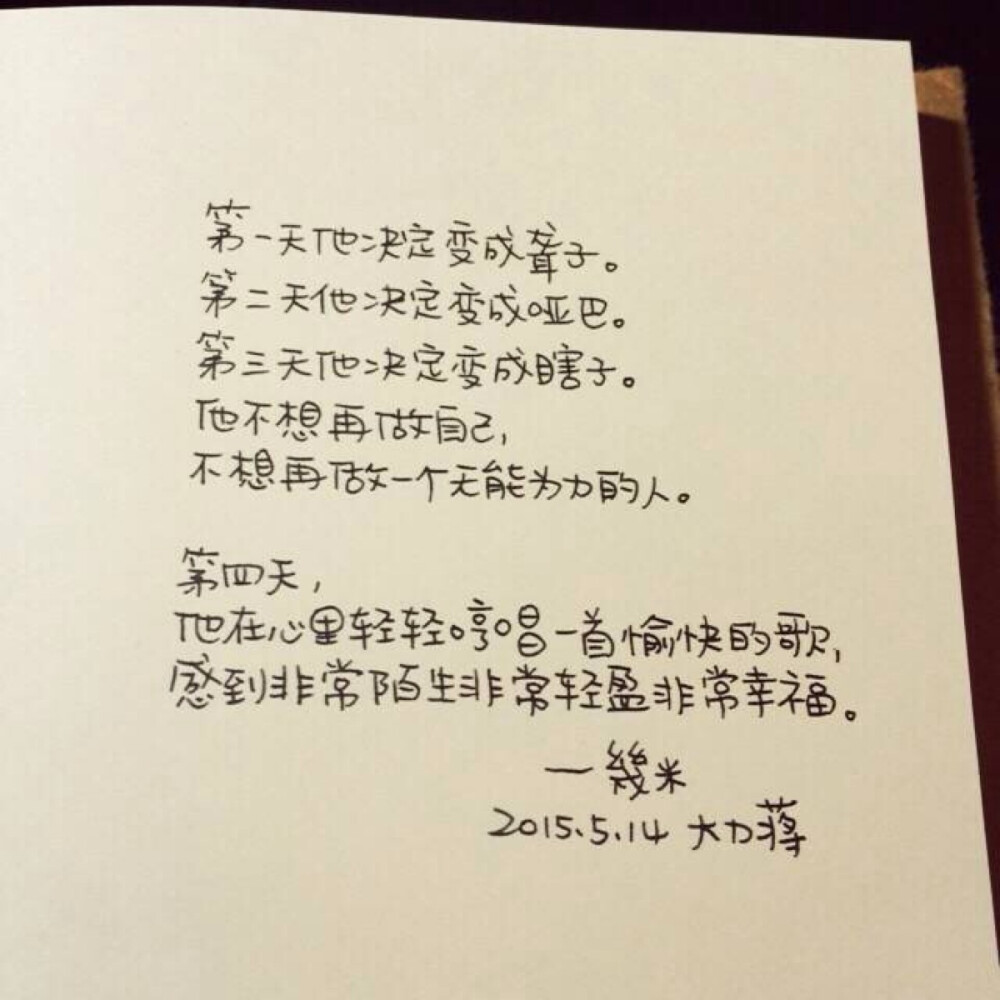 第一天他决定变成聋子。
第二天他决定变成哑巴。
第三天他决定变成瞎子。
他不想再做自己,
不想再做一个无能为力的人。
第四天,
他在心里轻轻哼唱一首愉快的歌,
感到非常陌生非常轻盈非常幸福。
—幾米
2015.5.14 大力蒋